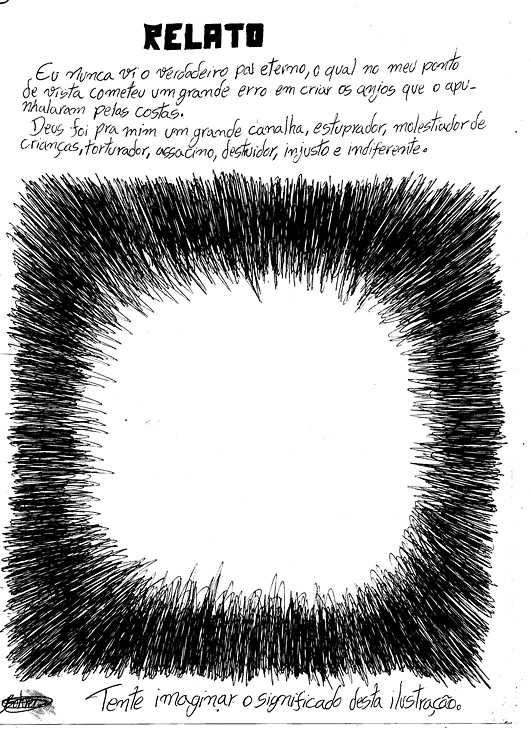 RELATO
Eu nunca vi o verdadeiro pai eterno, o qual no meu ponto
de vista cometeu um grande erro em criar os anjos que o apu-
nhalaram pelas costas.
Deus foi pra mim um grande canalha, estuprador, molestiador de
crianças, torturador, assacino, destuidor, injusto e indiferente.
Tente imaginar o significado desta ilustração.